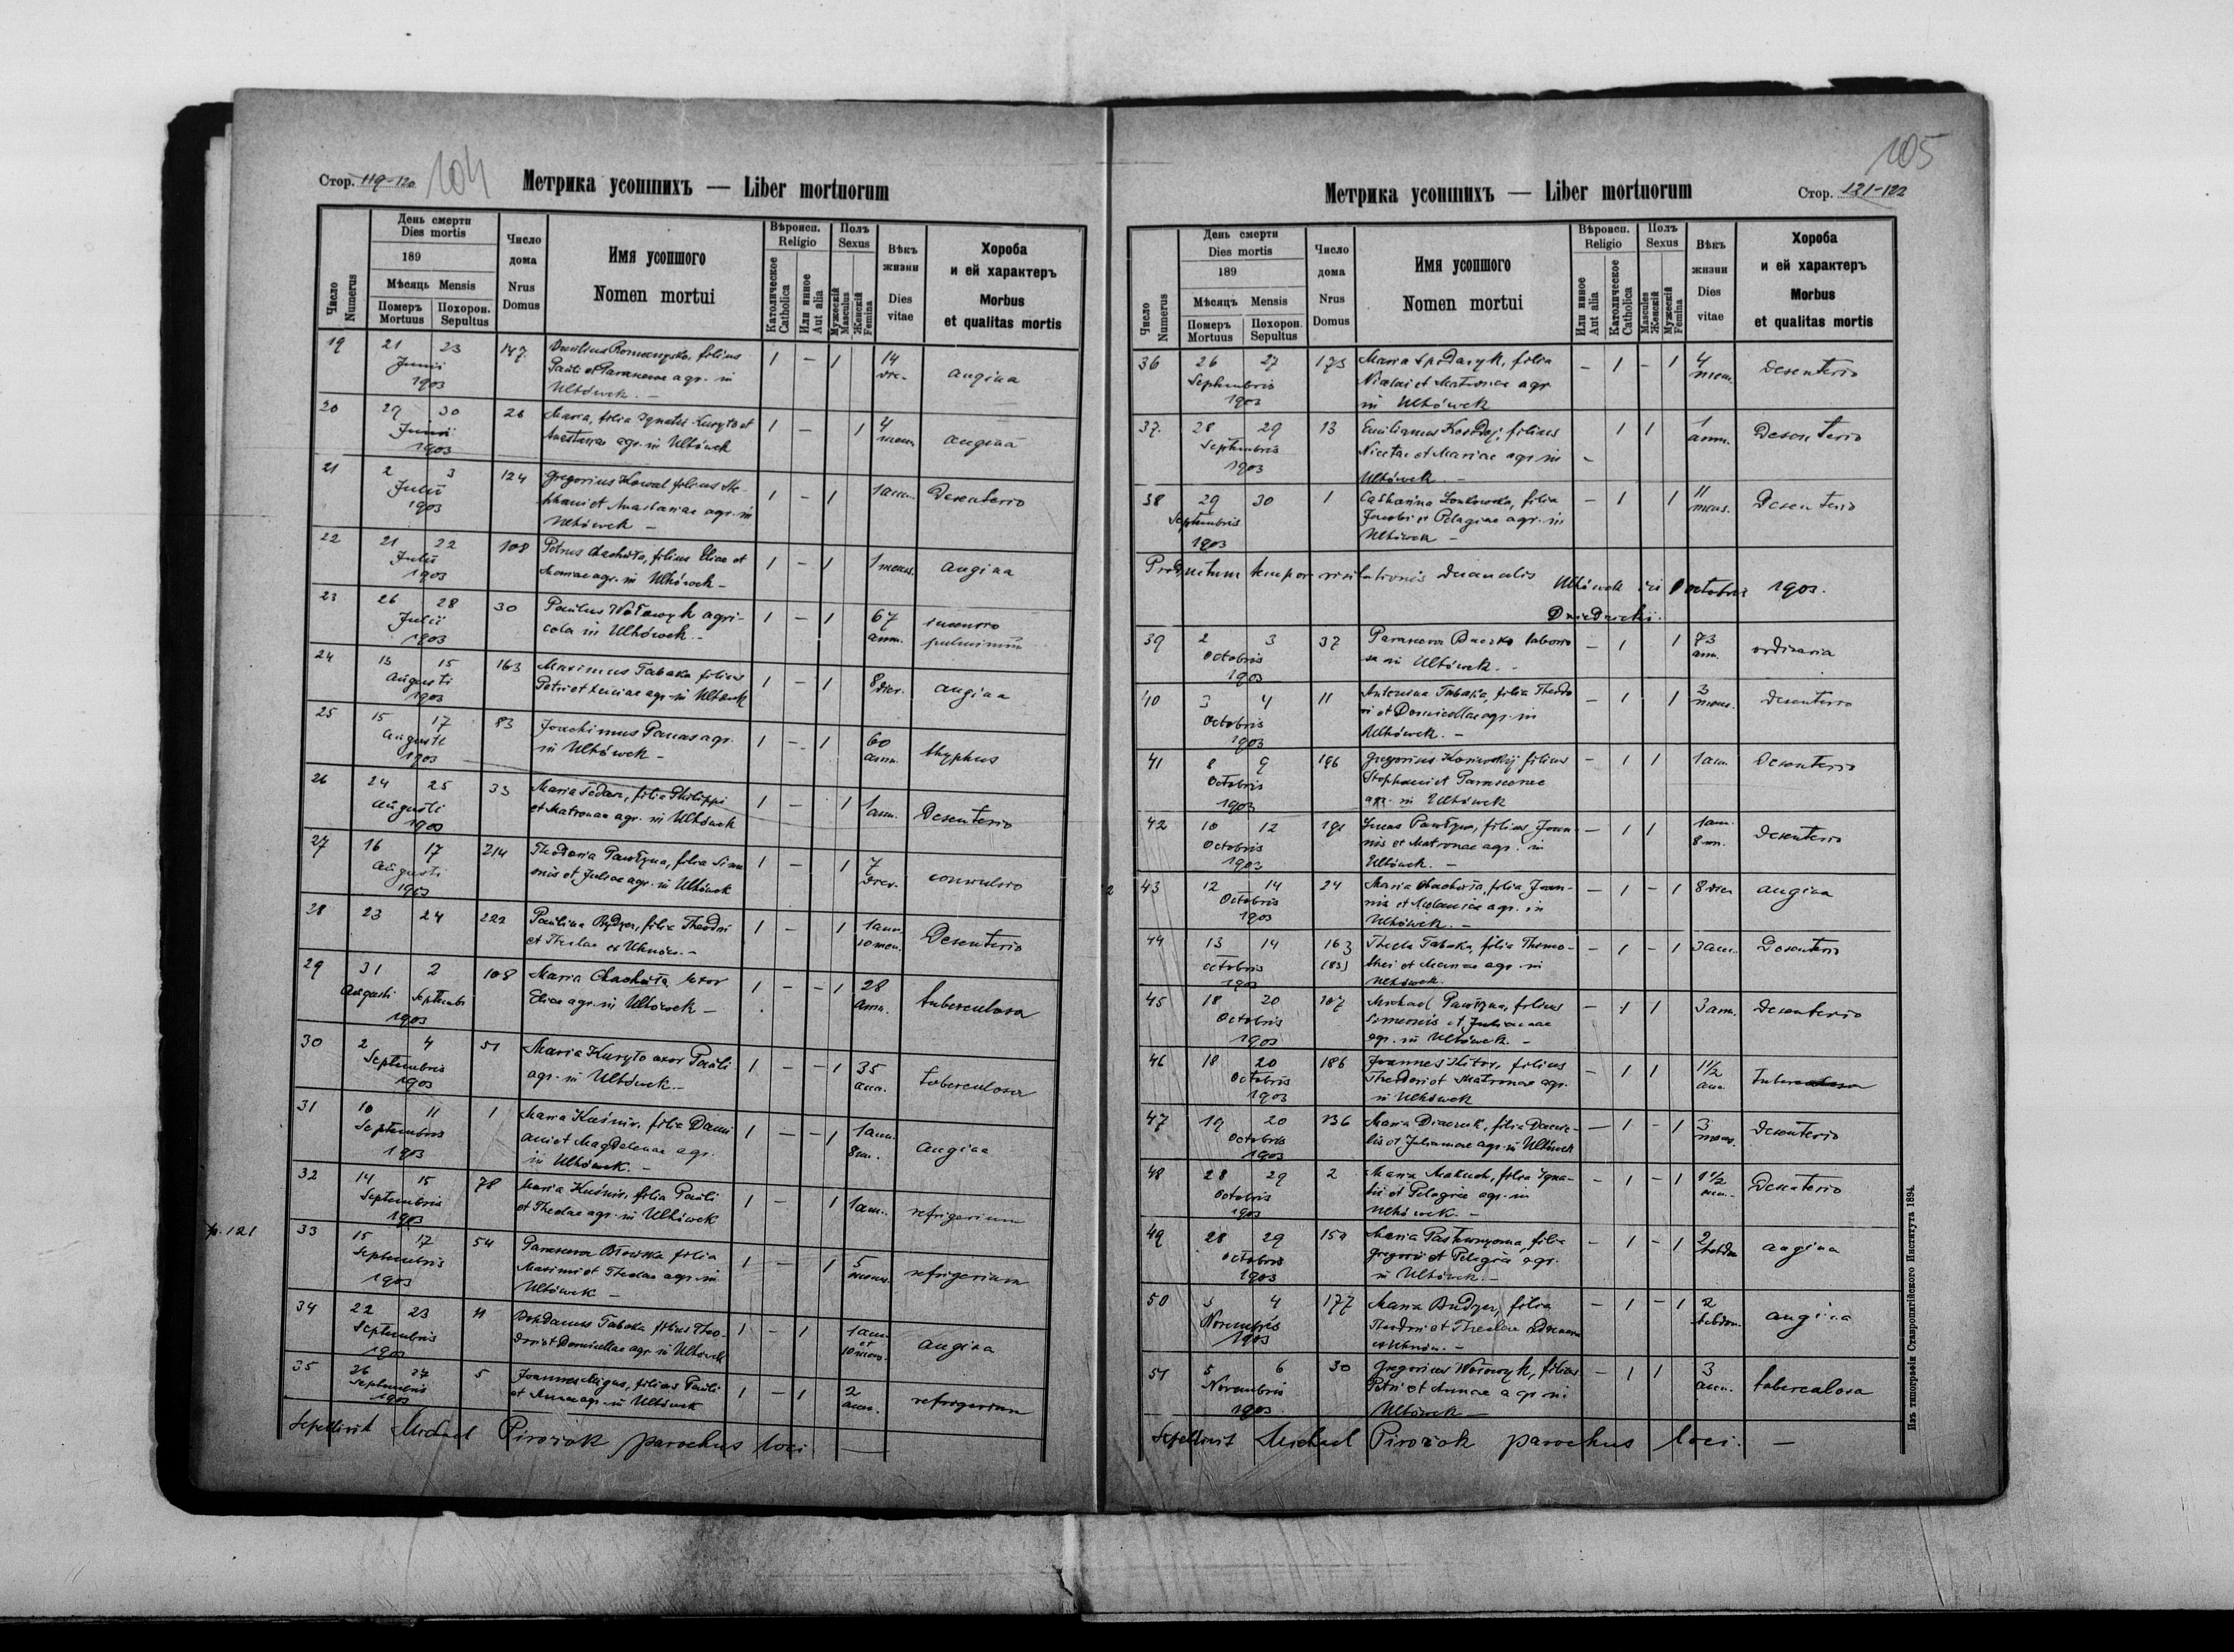 Стор. 119-120 104 Метрика усопшихъ — Liber mortuorum
Число Numerus
День смерти
Dies mortis
189
Мѣсяць Mensis
Померъ Mortuus
Похорон. Sepultus
Число дома
Nrus Domus
Имя усопшого
Nomen mortui
Вѣроисп. Religio
Католическое Catholica
Или инное Aut alia
Полъ Sexus
Мужескій Masculus
Женскій Femina
Вѣкъ жизни
Dies vitae
Хороба
и ей характеръ
Morbus
et qualitas mortis
19 21 23 147 filius 1 — 1 14
Junii Pauli et Parascevae agr. in dies angina
1903 Uhówek. —
20 29 30 26 Maria, filia Ignatii Kuryło et 1 — 1 4
Junii Anastasiae agr. in Uhówek mens. angina
1903
21 2 3 124 Gregorius Kowal filius Ste- 1 — 1 1 ann. Desenterio
Julii phani et Anastasiae agr. in
1903 Uhówek —
22 21 22 108 Petrus Chachuła, filius Eliae et 1 — 1 1 mens. angina
Julii Mariae agr. in Uhówek —
1903
23 26 28 30 Paulus Wołowyk agri- 1 — 1 67
Julii cola in Uhówek. — ann.
1903
24 13 15 163 Maximus Tabaka filius 1 — 1 8 dier. angina
Augusti Petri et Luciae agr. in Uhówek
1903
25 15 17 83 Joachimus Panas agr. 1 — 1 60 thyphus
Augusti in Uhówek — ann.
1903
26 24 25 33 Maria Fedan, filia Philippi 1 — 1 1 ann. Desenterio
Augusti et Matronae agr. in Uhówek
1903
27 16 17 214 Theodosia Pawłyna, filia Sime 1 — 1 7 convulsio
Augusti onis et Juliae agr. in Uhówek dier.
1903
28 23 24 222 Paulina Budzen, filia Theodori 1 — 1 1 ann. Desenterio
et Theclae ex Uhnów. — 10 men.
29 31 2 108 Maria Chachuła uxor 1 — — 1 28 tuberculosa
Augusti Septembr. Eliae agr. in Uhówek — ann.
1903
30 2 4 51 Maria Kuryło uxor Pauli 1 — — 1 35 tuberculosa
Septembris agr. in Uhówek. — ann.
1903
31 10 11 1 Maria Kuśnir, filia Dami 1 — — 1 1 ann. angina
Septembris ani et Magdalenae agr. 8 m.
1903 in Uhówek. —
32 14 15 78 Maria Kuśnir, filia Pauli 1 — 1 1 ann. refrigerium
Septembris et Theclae agr. in Uhówek
1903
p. 121
33 15 17 54 Parascewa filia 1 — 1 5 refrigerium
Septembris Maximi et Theclae agr. in mens.
1903 Uhówek —
34 22 23 11 Bohdanus Tabaka filius Theo- 1 — 1 1 ann. angina
Septembris dori et Domicellae agr. in Uhówek et 10 mens.
1903
35 26 27 5 Joannes Migus, filius Pauli 1 — 1 2 refrigerium
Septembris et Annae agr. in Uhówek ann.
1903
Sepelivit Michael Pirożok parochus loci —
105
Метрика усопшихъ — Liber mortuorum Стор. 121-122
Число Numerus
День смерти
Dies mortis
189
Мѣсяцъ Mensis
Померъ Mortuus
Похорон. Sepultus
Число дома
Nrus Domus
Имя усопшого
Nomen mortui
Вѣроисп. Religio
Или инное Aut alia
Католическое Catholica
Полъ Sexus
Masculus Женскій
Мужескій Femina
Вѣкъ жизни
Dies vitae
Хороба
и ей характеръ
Morbus
et qualitas mortis
36 26 27 173 Maria Spodaryk, filia — 1 — 1 4 Desenterio
Septembris Nicolai et Matronae agr. mens.
1903 in Uhówek
37. 28 29 13 filius 1 1 1 Desenterio
Septembris Nicetae et Mariae agr. in — ann.
1903 Uhówek. —
38 29 30 1 Catharina filia — 1 1 11 Desenterio
Septembris Jacobi et Pelagiae agr. in mens.
1903 Uhówek —
Productum tempore visitationis decanalis Uhówek Octobris 1903.
39 2 3 37 Parascewa Baczko laborio — 1 1 73 ordinaria
Octobris sa in Uhówek. — ann.
1903
40 3 4 11 Antonina Tabaka, filia Theodo — 1 1 3 Desenterio
Octobris ri et Domicellae agr. in mens.
1903 Uhówek. —
41 8 9 196 Gregorius filius — 1 1 1 ann. Desenterio
Octobris Stephani et Parascevae
1903 agr. in Uhówek
42 10 12 191 Lucas Pawłyna, filius Joan- — 1 1 1 ann. Desenterio
Octobris nis et Matronae agr. in 8 m.
1903 Uhówek. —
43 12 14 24 Maria Chachuła, filia Joan- — 1 — 1 8 dier angina
Octobris nis et Melaniae agr. in
1903 Uhówek. —
44 13 14 163 Thecla Tabaka, filia Thimo- — 1 — 1 3 ann. Desenterio
Octobris (83) thei et Mariae agr. in
1903 Uhówek.
45 18 20 107 Michael Pawłyna, filius — 1 1 3 ann. Desenterio
Octobris Simeonis et Julianae
1903 agr. in Uhówek. —
46 18 20 186 Joannes filius — 1 1 1 1/2
Octobris Theodori et Matronae agr. ann.
1903 in Uhówek
47 19 20 136 Maria filia — 1 — 1 3 Desenterio
Octobris et Julianae agr. in Uhówek mens.
1903
48 28 29 2 Maria Makuch, filia Igna- — 1 — 1 1 1/2 Desenterio
Octobris tii et Pelagiae agr. in ann.
1903 Uhówek. —
49 28 29 159 Maria filia — 1 — 1 2 angina
Octobris Gregorii et Pelagiae agr.
1903 in Uhówek. —
50 3 4 177 Maria Budzen, filia — 1 — 1 2 angina
Novembris Theodori et Theclae hebdom.
1903 ex Uhnów. —
51 5 6 30 Gregorius Wołowyk, filius — 1 1 3 tuberculosa
Novembris Petri et Annae agr. in ann.
1903 Uhówek —
Sepelivit Michael Pirożok parochus loci. —
Изъ типографіи Ставропигійского Института 1894.